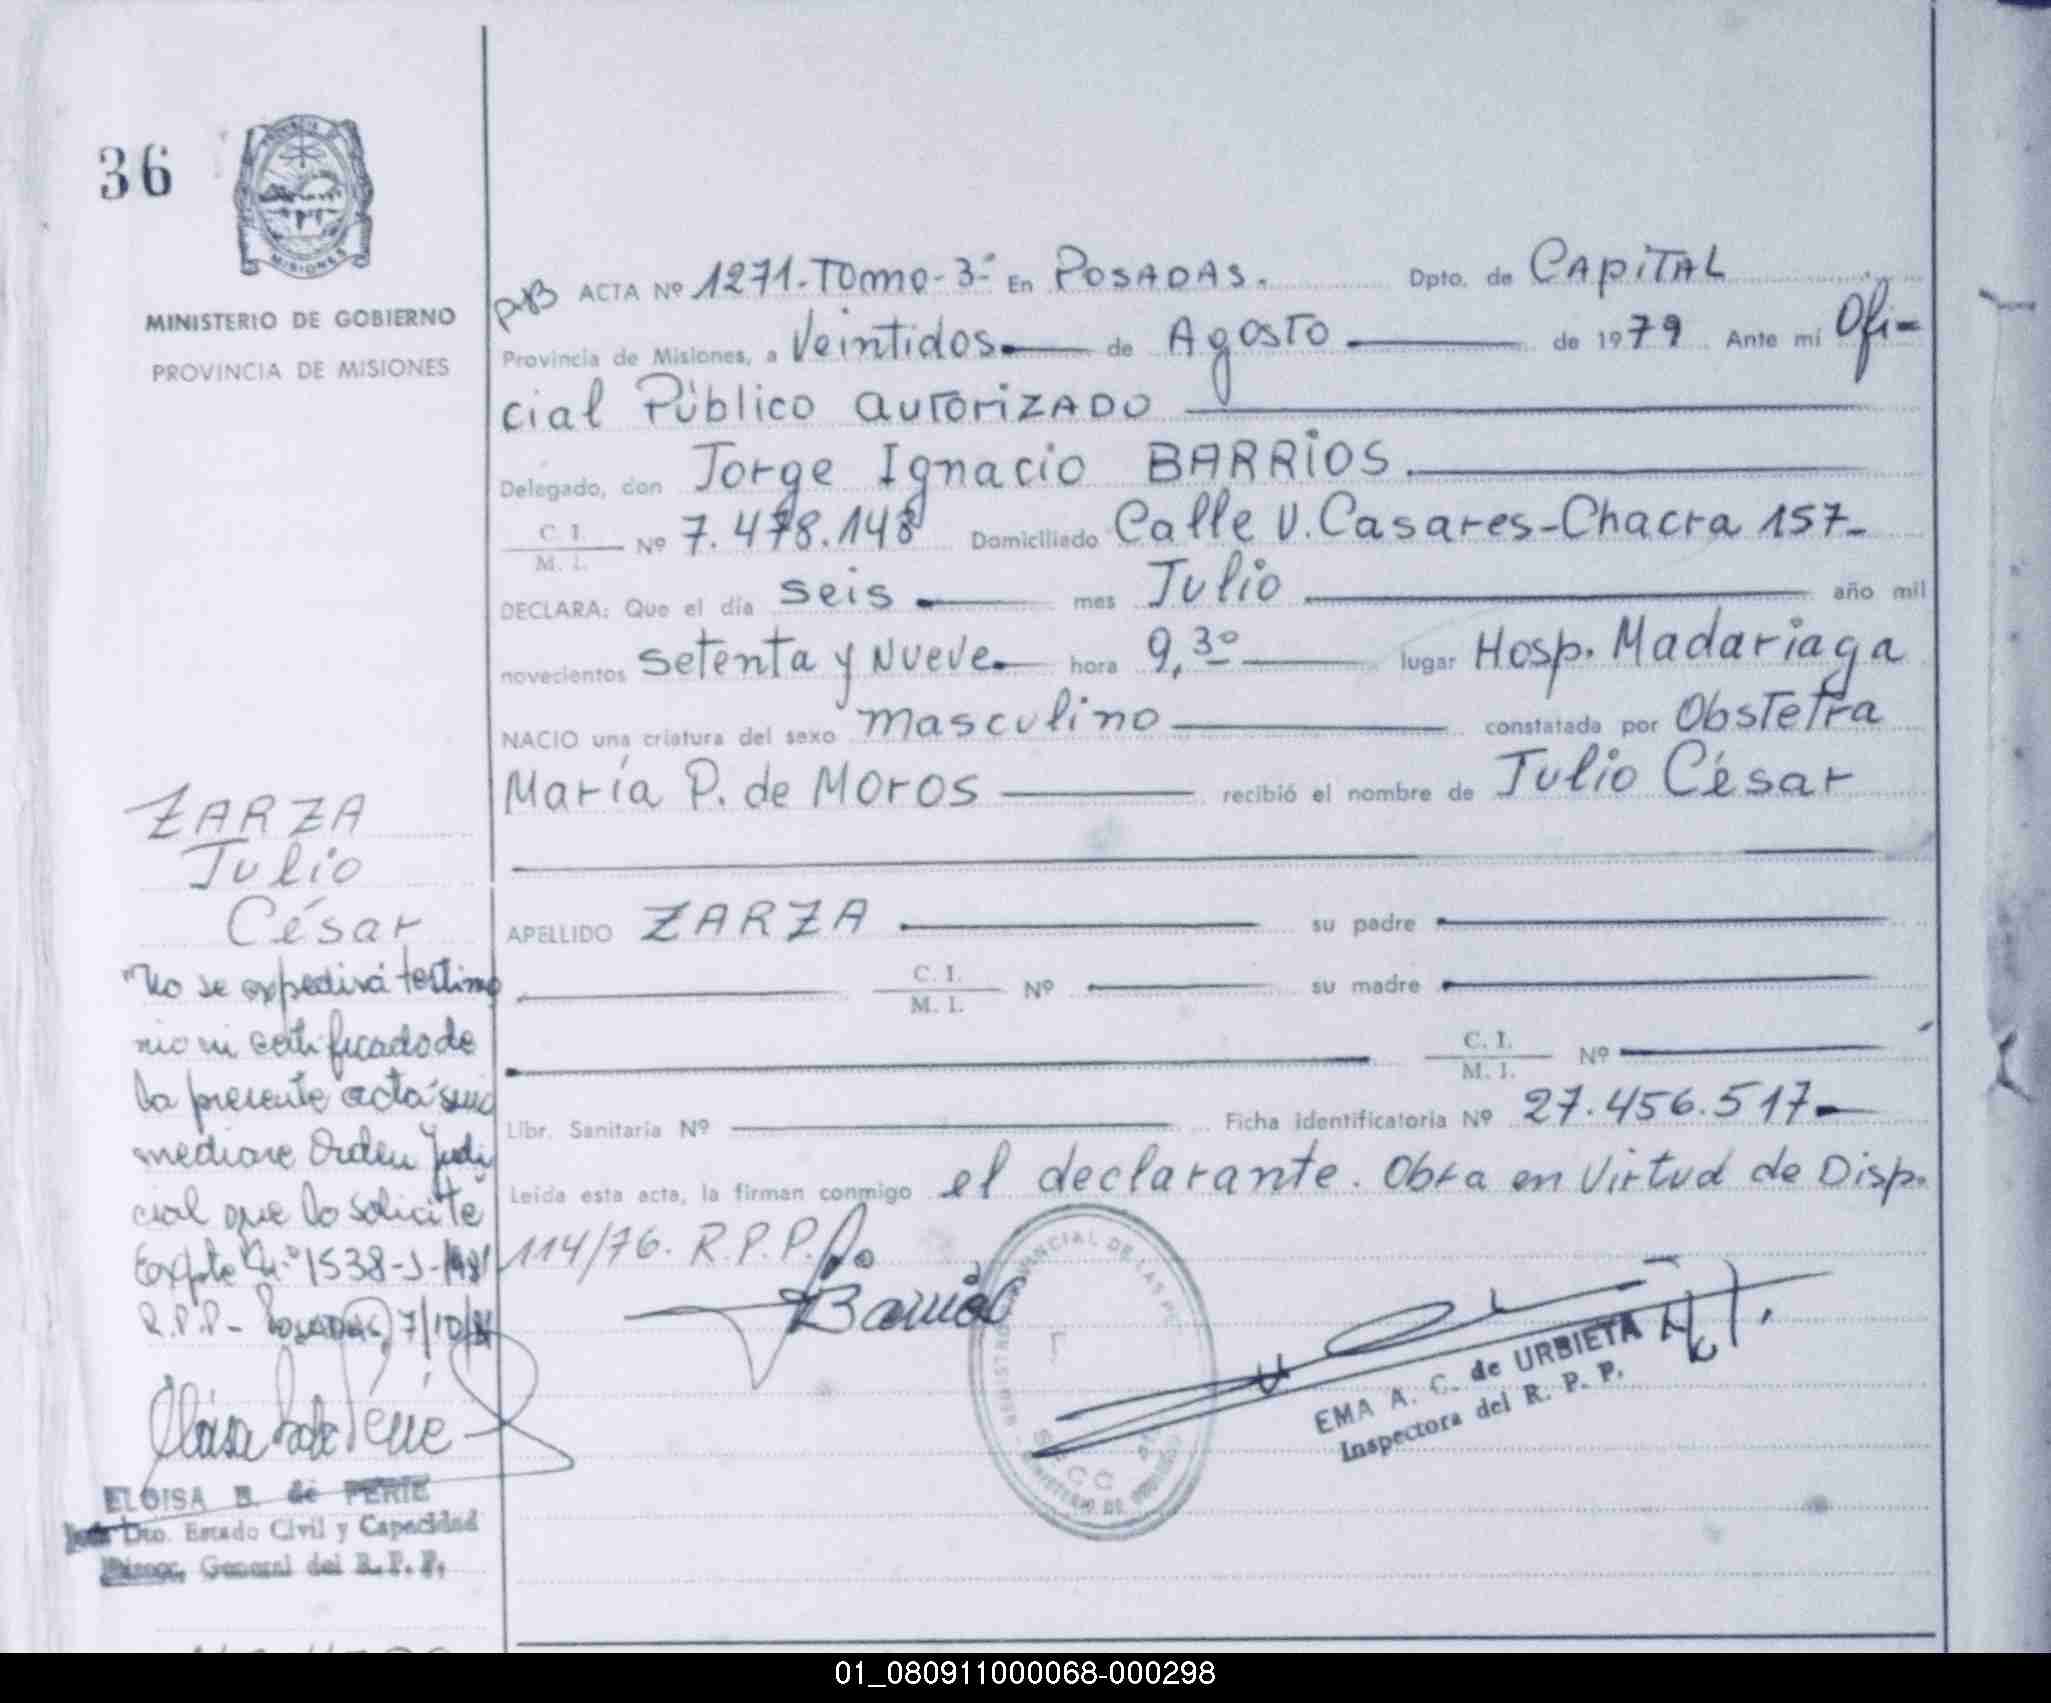 36
PROVINCIA DE
MISIONES
MINISTERIO DE GOBIERNO
PROVINCIA DE MISIONES
ACTA Nº 1271.Tomo-3º En POSADAS. Dpto. de CAPITAL
Provincia de Misiones, a Veintidos de Agosto de 1979 Ante mí Ofi-
cial Público autorizado
Delegado, don Jorge Ignacio BARRIOS.
C. I.
M. I. Nº 7.478.148 Domiciliado Calle V. Casares-Chacra 157-
DECLARA: Que el día seis mes Julio año mil
novecientos setenta y nueve hora 9,30 lugar Hosp. Madariaga
NACIO una criatura del sexo masculino constatada por Obstetra
María P. de Moros recibió el nombre de Julio César
APELLIDO ZARZA su padre
C. I.
M. I. Nº su madre
C. I.
M. I. Nº
Libr. Sanitaria Nº Ficha identificatoria Nº 27.456.517-
Leída esta acta, la firman conmigo el declarante. Obra en Virtud de Disp.
114/76. R.P.P.
Barrios
EMA A. C. de URBIETA
Inspectora del R. P. P.
ZARZA
Julio
César
"No se expedirá testimo
nio ni certificado de
la presente acta sino
mediare Orden Judi
cial que lo solicite
Expte Nº 1538-J-1981
R.P.P- Posadas, 7/10/81
ELOISA B. de PERIE
Dto. Estado Civil y Capacidad
Direcc. General del R. P. P.
01_080911000068-000298